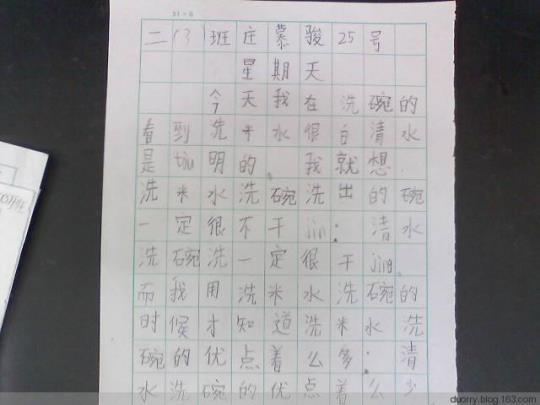 二(3)班庄慕骏25号
星期天
今天我在洗碗的
看到洗米水很白清水
是明的。我就想
洗米水洗碗洗出的碗
一定很不干jin；清水
洗碗洗一定很干jing。
而我用洗米水洗碗的
时候才知道洗米水洗
碗的优点着么多；清
水洗碗的优点着么少
duorry.blog.163.com